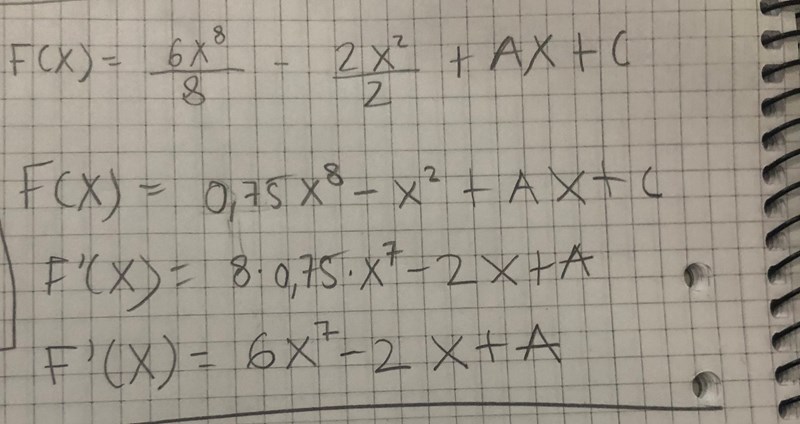 F(X) = 6x⁸/8 - 2x²/2 + AX + C
F(X) = 0,75x⁸ - x² + AX + C
F'(X) = 8·0,75·x⁷ - 2x + A
F'(X) = 6x⁷ - 2x + A